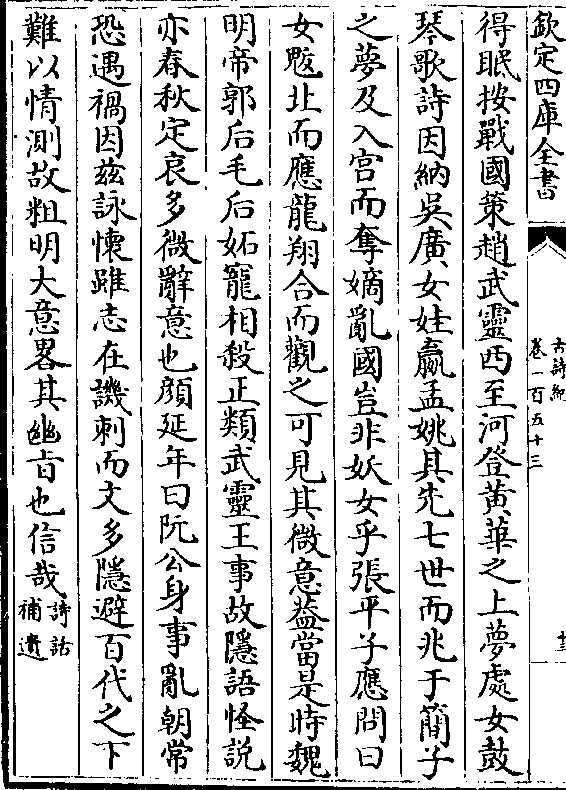 欽定四庫全書
古詩紀
卷一百五十三
十三
得眠按戰國策趙武靈西至河登黃華之上夢處女鼓
琴歌詩因納吳廣女娃嬴孟姚其先七世而兆于簡子
之夢及入宮而奪嫡亂國豈非妖女乎張平子應問曰
女魃北而應龍翔合而觀之可見其微意葢當是時魏
明帝郭后毛后妬寵相殺正類武靈王事故隱語怪説
亦春秋定哀多微辭意也顔延年曰阮公身事亂朝常
恐遇禍因茲詠懷雖志在譏刺而文多隱避百代之下
難以情測故粗明大意畧其幽旨也信哉詩話
補遺